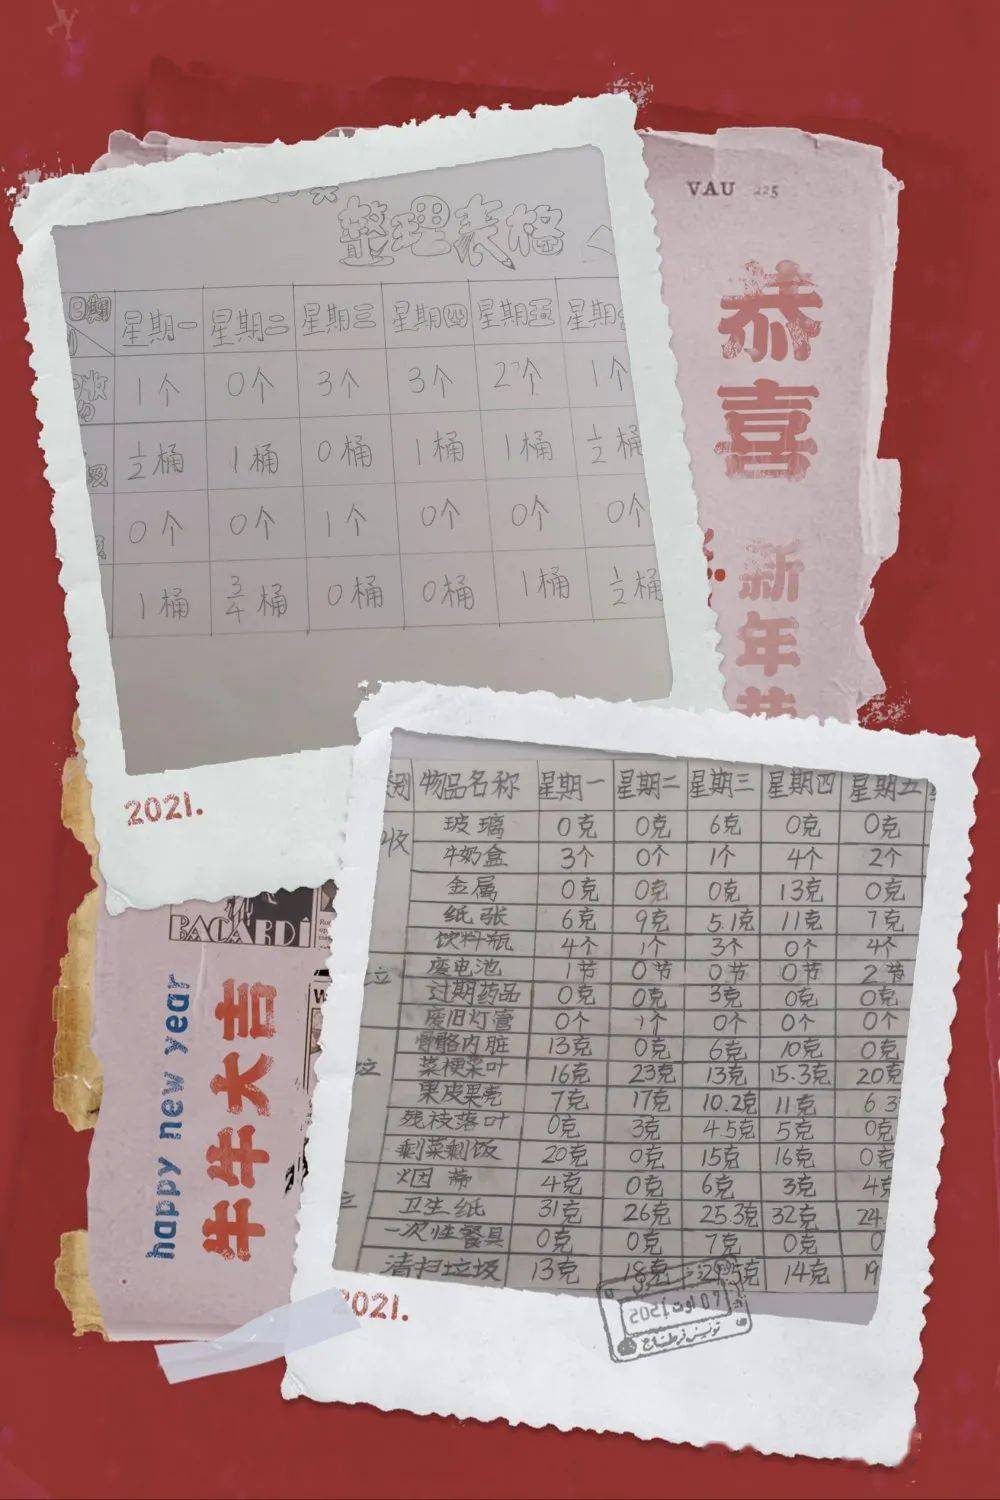 VAU 225
恭喜
新年
整理表格
日期 星期一 星期二 星期三 星期四 星期五 星期
收 1个 0个 3个 3个 2个 1个
圾 1/2桶 1桶 0桶 1桶 1桶 1/2桶
0个 0个 1个 0个 0个 0个
1桶 3/4桶 0桶 0桶 1桶 1/2桶
2021.
BACARDI
happy new year
牛牛大吉
别 物品名称 星期一 星期二 星期三 星期四 星期五
收 玻璃 0克 0克 6克 0克 0克
牛奶盒 3个 0个 1个 4个 2个
金属 0克 0克 0克 13克 0克
纸张 6克 9克 5.1克 11克 7克
饮料瓶 4个 1个 3个 0个 4个
废电池 1节 0节 0节 0节 2节
过期药品 0克 0克 3克 0克 0克
废旧灯管 0个 1个 0个 0个 0个
骨骼内脏 13克 0克 6克 10克 0克
菜梗菜叶 16克 23克 13克 15.3克 20克
果皮果壳 7克 17克 10.2克 11克 6.3
残枝落叶 0克 3克 4.5克 5克 0克
剩菜剩饭 20克 0克 15克 16克 0克
烟蒂 4克 0克 6克 3克 4克
卫生纸 31克 26克 25.3克 32克 24.
一次性餐具 0克 7克 0克 0
清扫垃圾 13克 18克 14克 19
2021.